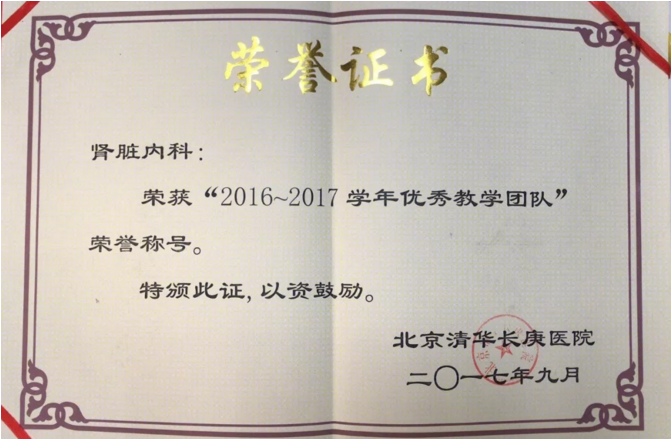 荣誉证书
肾脏内科：
荣获“2016~2017 学年优秀教学团队”
荣誉称号。
特颁此证，以资鼓励。
北京清华长庚医院
二〇一七年九月